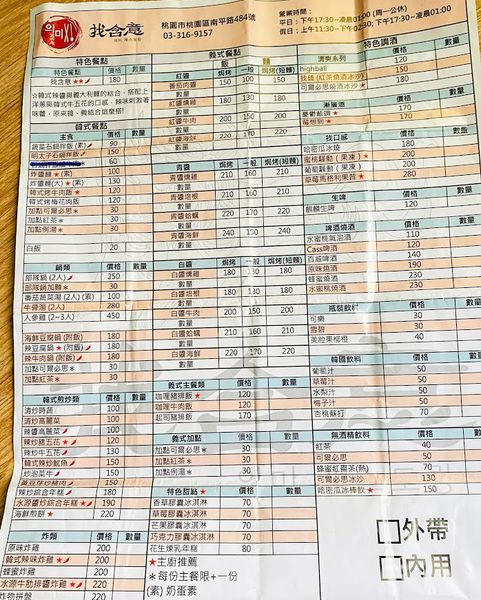 找含意
桃園市桃園區南平路484號
03-316-9157
營業時間：
平日：下午17:30~凌晨01:00 (周一公休)
假日：上午11:30~下午02:30; 下午17:30~凌晨01:00
特色餐點
特色餐點 價格 數量
找含意 180
韓式餐點
主食 價格 數量
蔬菜石鍋拌飯(素) 90
明太子石鍋拌飯 150
60
炸醬麵★(素) 100
炸醬麵(大)★(素) 130
韓式烤牛肉飯★ 120
韓式烤梅花肉飯 120
加點可爾必思＊ 30
加點紅茶＊ 30
加點例湯＊ 30
白飯 20
鍋類 價格 數量
部隊鍋 (2人) 250
部隊鍋加麵＊ 30
番茄蔬菜湯 (2人) (素) 100
牛骨湯 (2人) 280
人參雞 (2~3人) 450
海鮮豆腐鍋 (附飯) 180
辣豆腐鍋★(附飯) 180
辣牛肉鍋 (附飯) 180
加點可爾必思＊ 30
加點紅茶＊ 30
韓式煎炒類 價格 數量
清炒時蔬 100
清炒高麗菜 100
辣醬高麗菜 100
辣炒豬五花★ 120
辣炒牛五花★ 120
韓式辣炒魷魚★ 150
炒泡菜牛 150
黃豆芽炒豬肉 150
辣炒綜合年糕 180
水源炒綜合年糕★ 190
海鮮煎餅★ 220
炸類 價格 數量
原味炸雞 200
韓式辣味炸雞★ 200
蜂蜜炸雞 200
水源牛肋排醬炸雞★ 220
炸物拼盤 200
義式餐點
飯 麵
紅醬 焗烤 一般 焗烤(短麵) 數量
番茄肉醬 150 100 150
紅醬燻雞
紅醬牛肉 200 150 200
紅醬海鮮 220 170 220
青醬 焗烤 一般 焗烤(短麵) 數量
青醬燻雞 210 160 210
青醬培根
青醬蛤蠣 220 170 220
青醬牛肉
青醬海鮮
白醬 焗烤 一般 焗烤(短麵) 數量
白醬燻雞 180 130 180
白醬培根
白醬牛肉
白醬蛤蠣 210 160 210
白醬海鮮 220 170 220
義式主餐類 價格 數量
咖哩豬排飯★ 120
咖哩牛肉飯 120
起司豬排飯 170
義式加點 價格 數量
加點可爾必思＊ 30
加點紅茶＊ 30
加點例湯＊ 30
特色甜點★ 價格 數量
香草膠囊冰淇淋 70
草莓膠囊冰淇淋 70
芒果膠囊冰淇淋 70
巧克力膠囊冰淇淋 70
花生煉乳年糕 80
★主廚推薦
＊每份主餐限+一份
(素) 奶蛋素
特色調酒
清爽系列 價格 數量
highball
可爾必思燒酒冰沙★
漸層酒 價格 數量
莓想到★
找口感 價格 數量
哈密瓜冰燒 180
蜜桃輕動 ( 果凍 ) 200
葡萄輕動 ( 果凍 ) 200
草莓瑪格利果昔★ 280
生啤 價格 數量
麒麟生啤 120
啤酒燒酒 價格 數量
水蜜桃氣泡酒 110
Cass啤酒 120
百威啤酒 140
原味燒酒 210
蜂蜜啤酒 230
水蜜桃燒酒 230
瓶裝飲料 價格 數量
可樂 30
雪碧 30
美粒果柳橙 40
韓國飲料 價格 數量
葡萄汁 50
草莓汁 50
水梨汁 50
梅子汁 50
杏桃蘇打 70
無酒精飲料 價格 數量
紅茶 40
可爾必思 50
蜂蜜紅棗茶(熱) 70
可爾必思冰沙 90
哈密瓜冰棒飲★ 150
外帶
內用